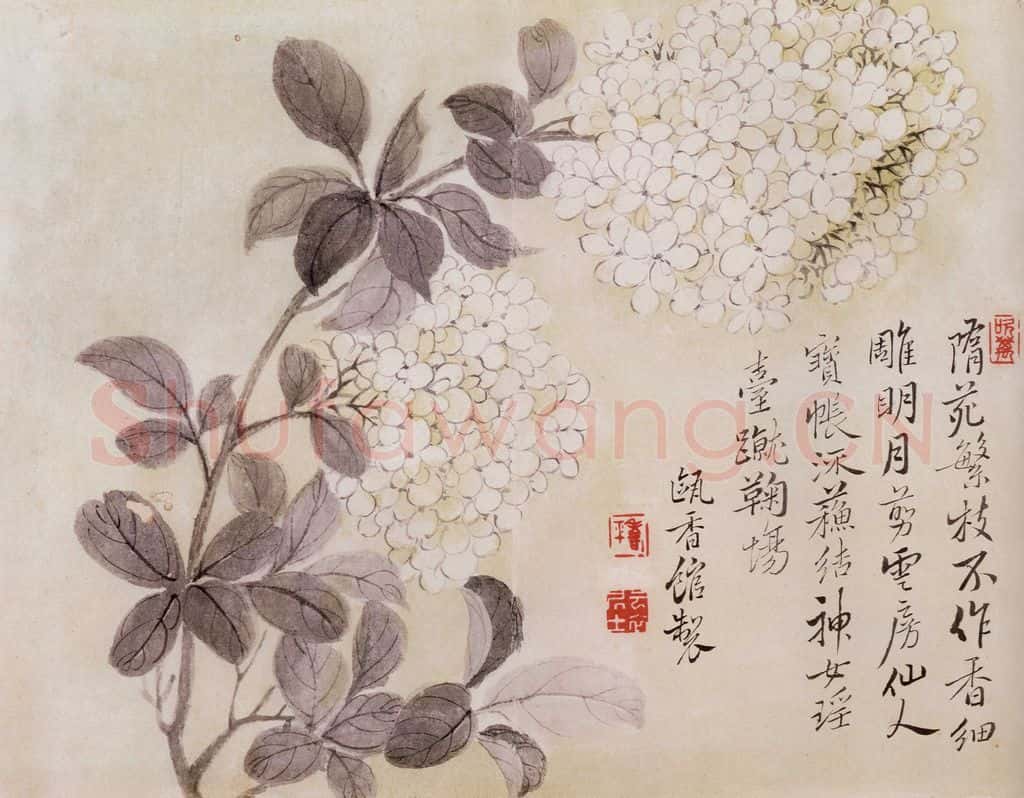 隋苑繁枝不作香細
雕明月剪雲房仙人
寶帳流蘇結神女瑤
臺蹴鞠場
甌香館製
Shufawang.CN